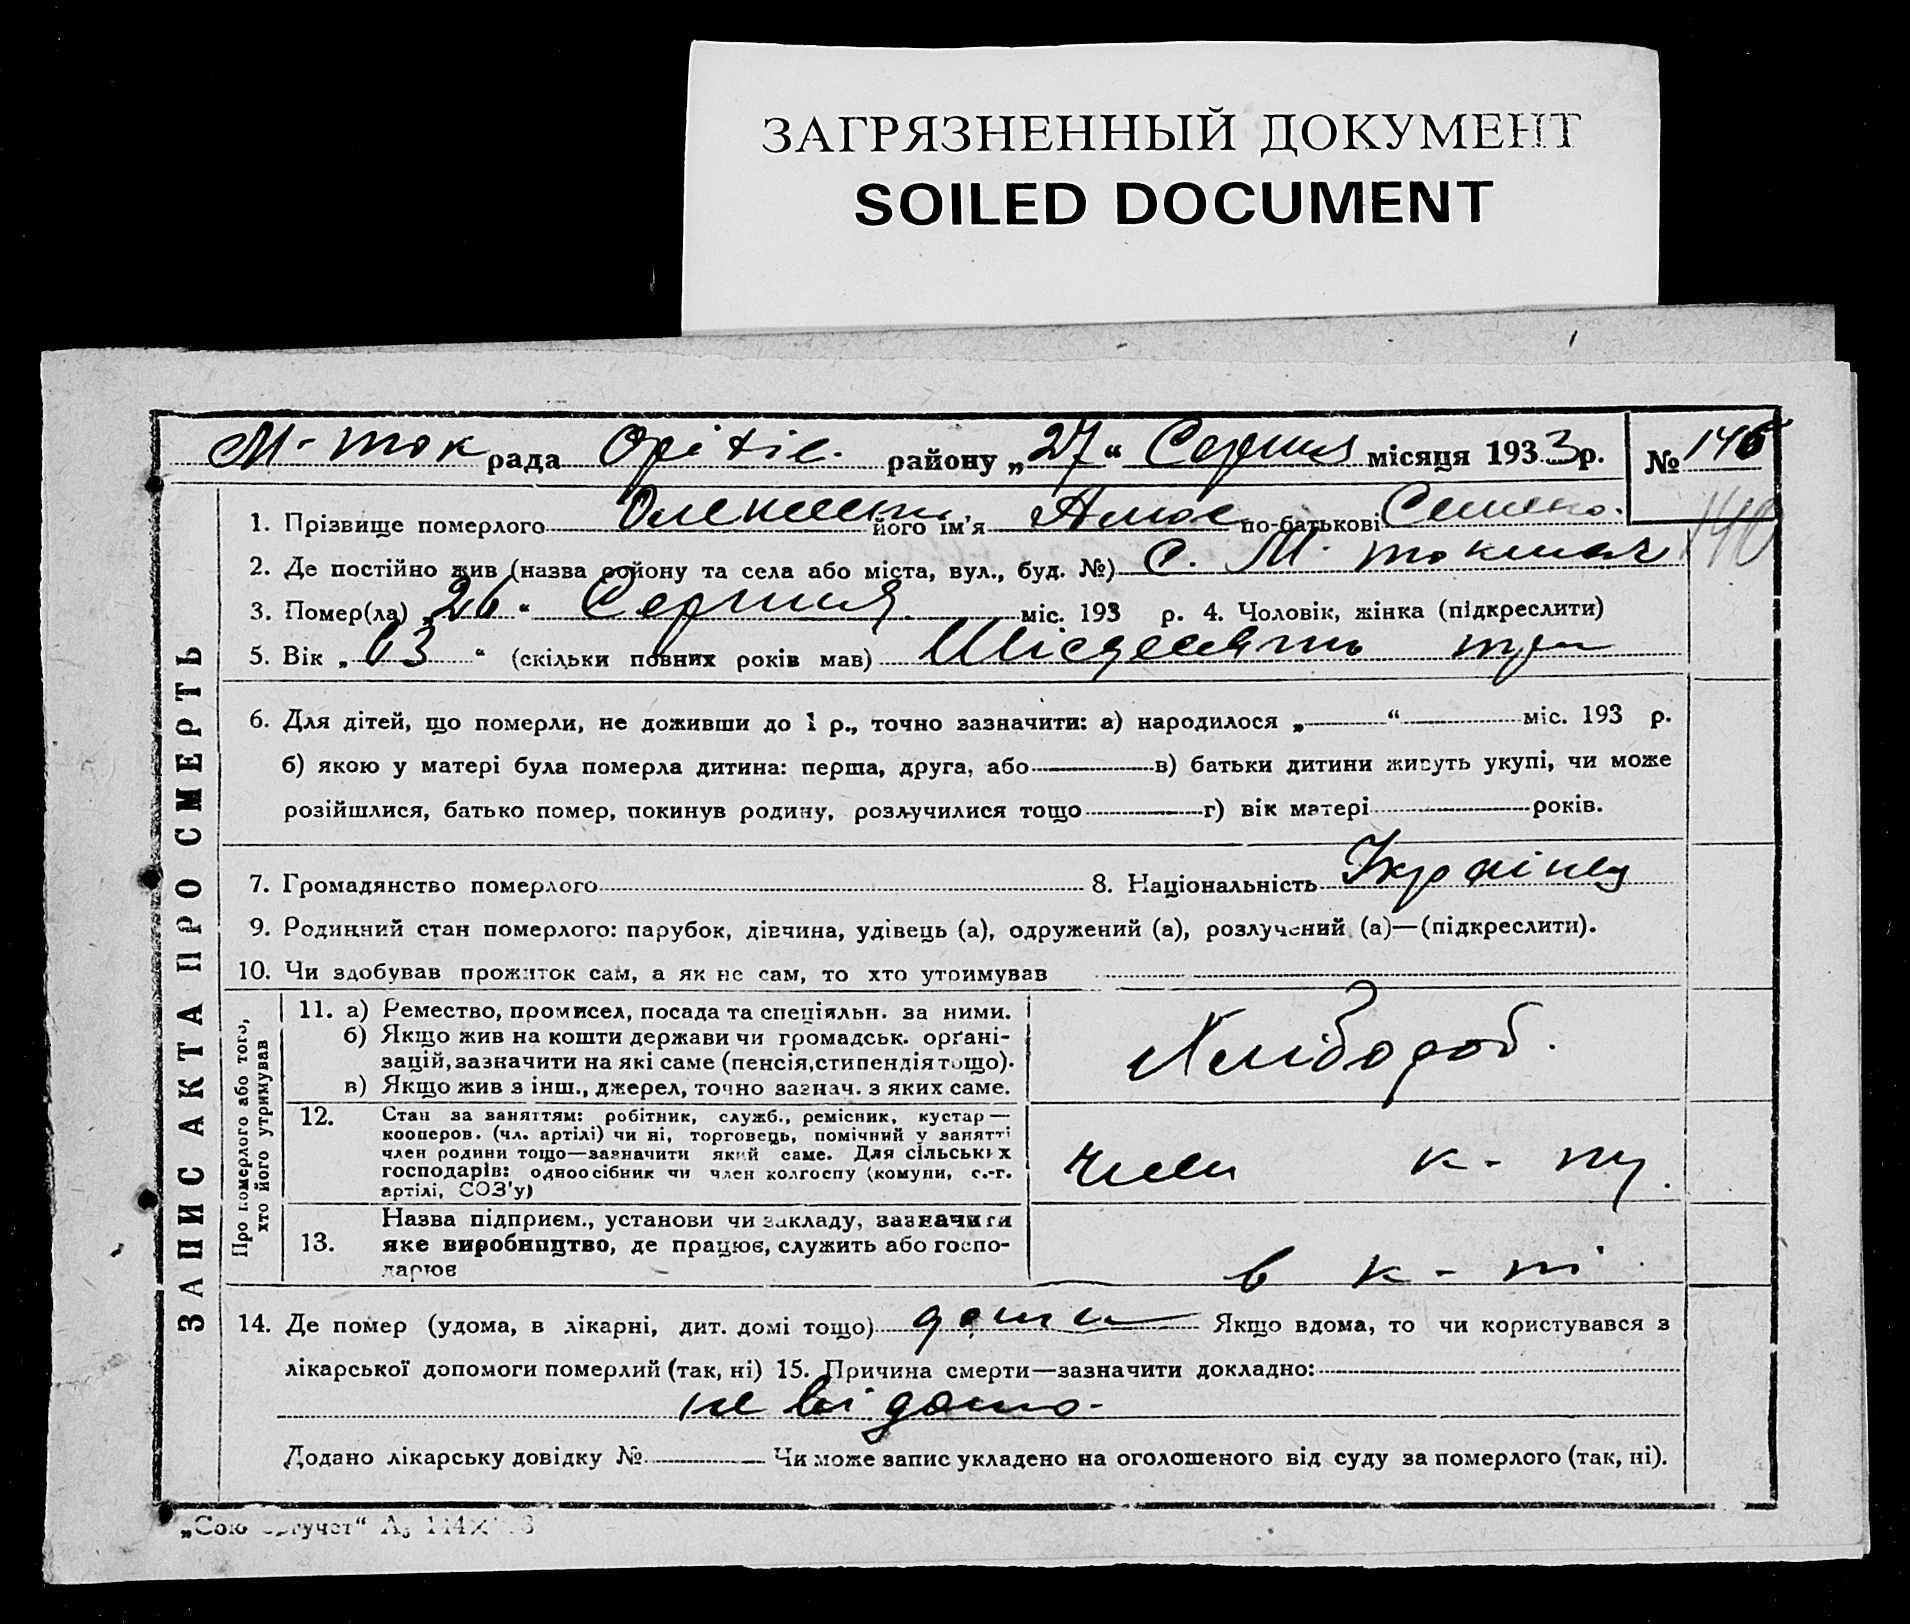 ЗАГРЯЗНЕННЫЙ ДОКУМЕНТ
SOILED DOCUMENT
М-ток рада Оріхів. району „27“ Серпня місяця 1933 р. № 146
140
ЗАПИС АКТА ПРО СМЕРТЬ
1. Прізвище померлого Олексієнко його ім'я Амос по-батькові Семено.
2. Де постійно жив (назва району та села або міста, вул., буд. №) С. М. токмач
3. Помер(ла) „26“ Серпня міс. 193 р. 4. Чоловік, жінка (підкреслити)
5. Вік „63“ (скільки повних років мав) Шісдесять три
6. Для дітей, що померли, не доживши до 1 р., точно зазначити: а) народилося „ “ міс. 193 р.
б) якою у матері була померла дитина: перша, друга, або в) батьки дитини живуть укупі, чи може
розійшлися, батько помер, покинув родину, розлучилися тощо г) вік матері років.
7. Громадянство померлого 8. Національність Українец
9. Родинний стан померлого: парубок, дівчина, удівець (а), одружений (а), розлучений (а)—(підкреслити).
10. Чи здобував прожиток сам, а як не сам, то хто утримував
Про померлого або того,
хто його утримував
11. а) Ремество, промисел, посада та спеціяльн. за ними.
б) Якщо жив на кошти держави чи громадськ. орґані-
зацій, зазначити на які саме (пенсія, стипендія тощо).
в) Якщо жив з інш., джерел, точно зазнач. з яких саме.
Хлібороб.
12. Стан за заняттям: робітник, служб., ремісник, кустар—
кооперов. (чл. артілі) чи ні, торговець, помічний у занятті
член родини тощо—зазначити який саме. Для сільських
господарів: одноосібник чи член колгоспу (комуни, с.-г.
артілі, СОЗ'у)
член к-пу.
13. Назва підприєм., установи чи закладу, зазначити
яке виробництво, де працює, служить або госпо-
дарює
в к-пі
14. Де помер (удома, в лікарні, дит. домі тощо) дома Якщо вдома, то чи користувався з
лікарської допомоги померлий (так, ні) 15. Причина смерти—зазначити докладно:
не відомо.
Додано лікарську довідку № Чи може запис укладено на оголошеного від суду за померлого (так, ні).